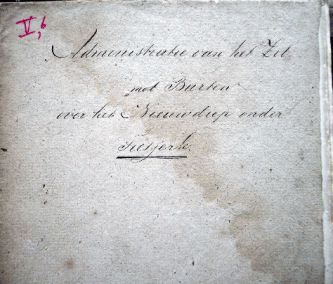 V,6
Administratie van het Zet
met Barken
over het Nieuwdiep onder
Tietjerk.